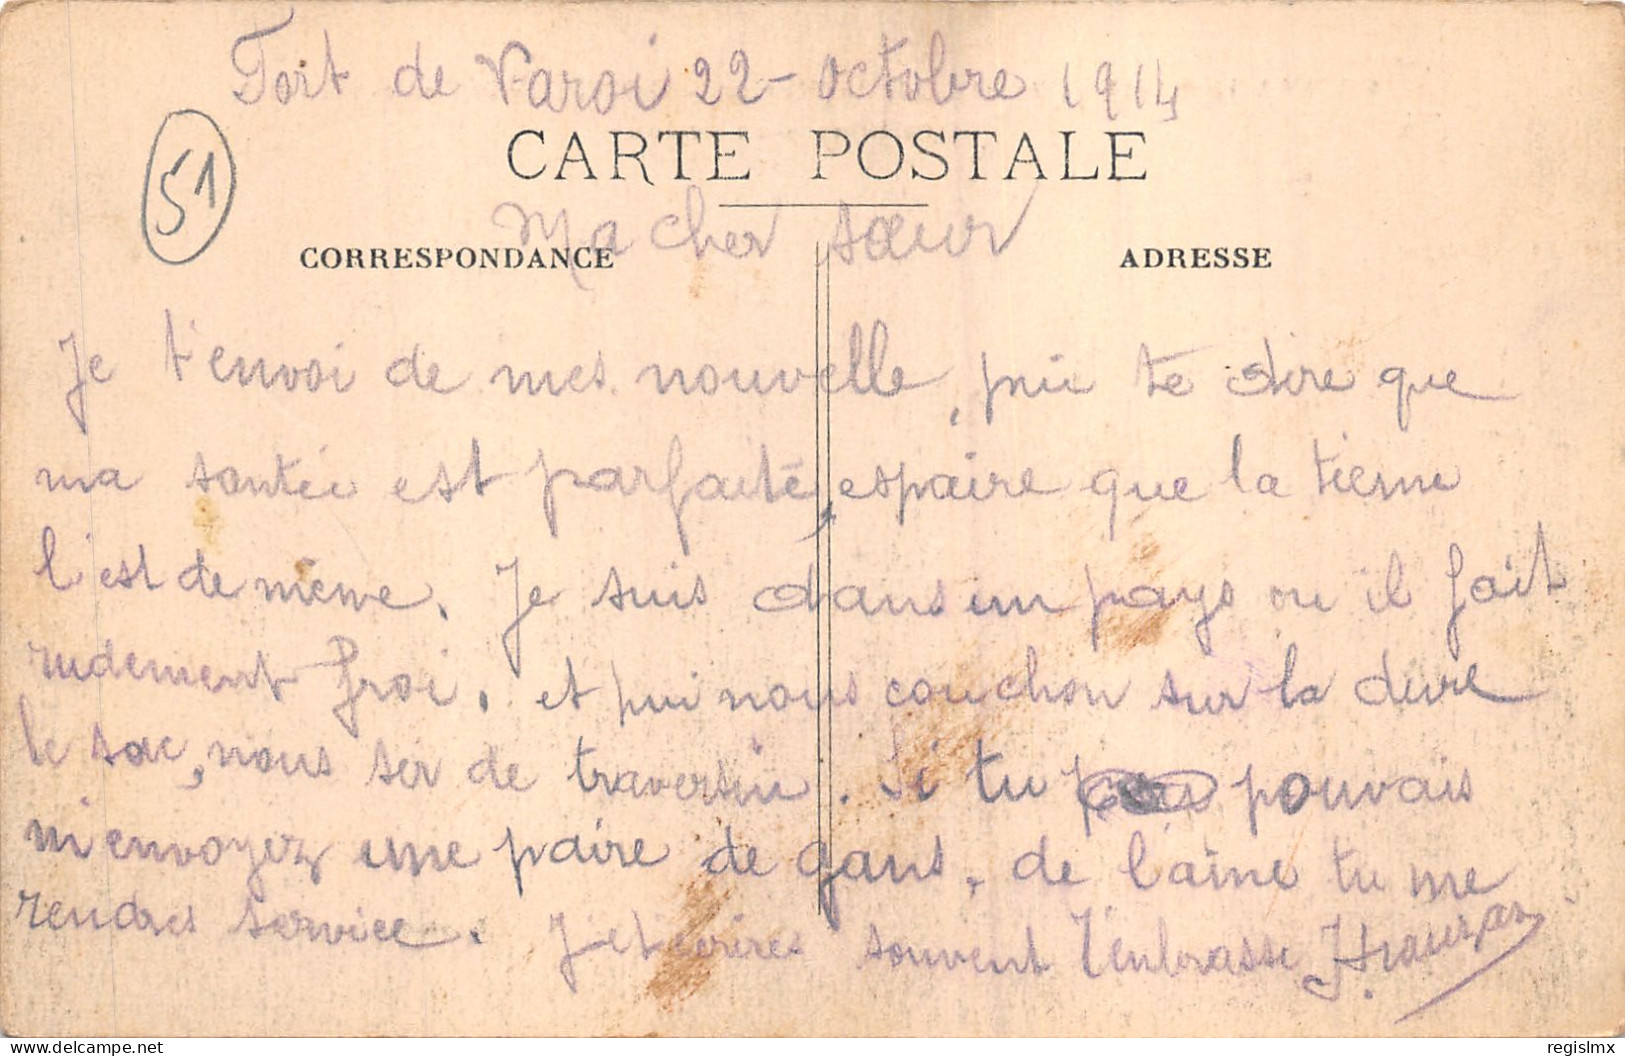 Fort de Varoi 22 - octobre 1914
51
CARTE POSTALE
Ma cher sœur
CORRESPONDANCE
ADRESSE
Je t'envoi de mes nouvelle, pui te dire que
ma santée est parfaité, espaire que la tienne
l'est de même. Je suis dans un pays ou il fait
rudement froi. et pui nous couchon sur la dure
le sac, nous ser de traversin. Si tu pouvais
m'envoyez une paire de gans. de l'aine tu me
rendres service. J'et'ecrires souvent T'enbrasse
delcampe.net
regislmx